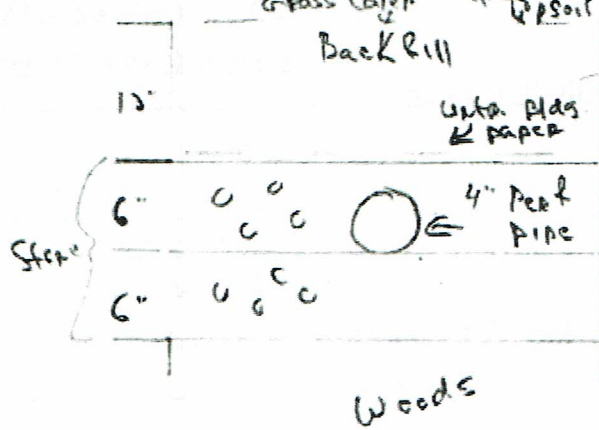 Grass
Topsoil
Backfill
12"
untr. bldg
paper
6"
4" Perf
pipe
Stone
6"
Woods